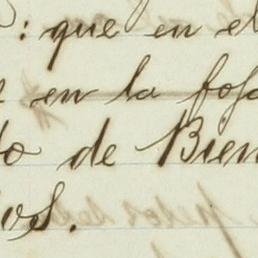 : que en el
en la fosa
to de Bien
vos.